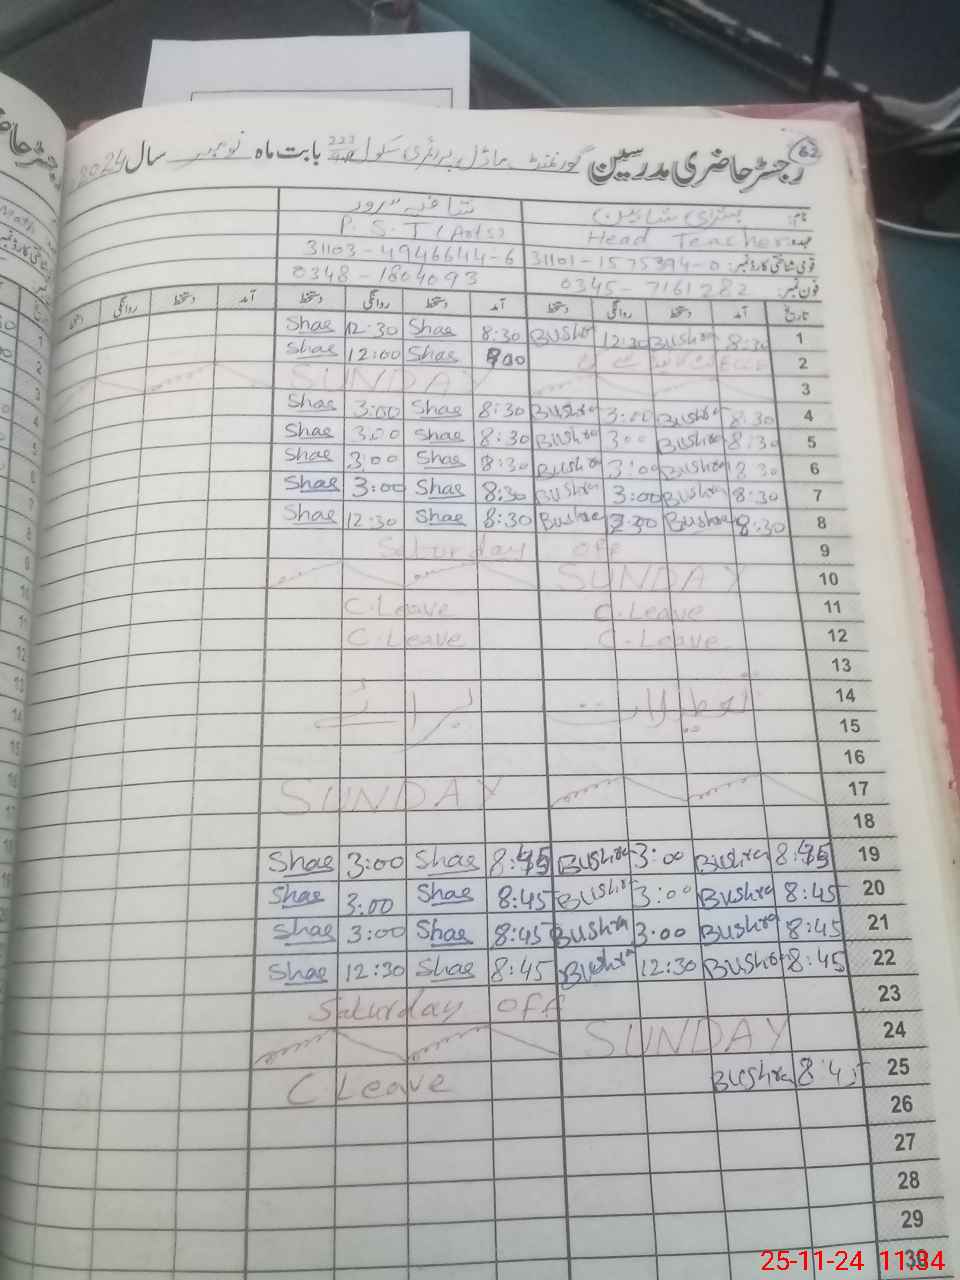 62
رجسٹر حاضری مدرسین گورنمنٹ ماڈل پرائمری سکول بابت ماہ نومبر سال 2024
نام: بشریٰ شاہین شافیہ سرور
عہدہ: Head Teacher P.S.T (Arts)
قومی شناختی کارڈ نمبر: 31101-1575394-0 31103-4946644-6
فون نمبر: 0345-7161282 0348-1804093
تاریخ آمد دستخط روانگی دستخط آمد دستخط روانگی دستخط آمد دستخط روانگی
1 8:30 Bushra 12:30 Bushra 8:30 Shas 12:30 Shas
2 Shas 12:00 Shas
3 SUNDAY
4 8:30 Bushra 3:00 Bushra 8:30 Shas 3:00 Shas
5 8:30 Bushra 3:00 Bushra 8:30 Shas 3:00 Shas
6 8:30 Bushra 3:00 Bushra 8:30 Shas 3:00 Shas
7 8:30 Bushra 3:00 Bushra 8:30 Shas 3:00 Shas
8 8:30 Bushra Bushra 8:30 Shas 12:30 Shas
9 Saturday off
10 SUNDAY
11 C.Leave C.Leave
12 C.Leave C.Leave
13
14 تعطیلات برائے
15
16
17 SUNDAY
18
19 8:45 Bushra 3:00 Bushra 8:45 Shas 3:00 Shas
20 8:45 Bushra 3:00 Bushra 8:45 Shas 3:00 Shas
21 8:45 Bushra 3:00 Bushra 8:45 Shas 3:00 Shas
22 8:45 Bushra 12:30 Bushra 8:45 Shas 12:30 Shas
23 Saturday off
24 SUNDAY
25 8:45 Bushra C.Leave
26
27
28
29
30
25-11-24 11:34